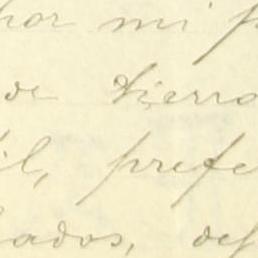 por mi p
de tierra
il, prefe
lados, def